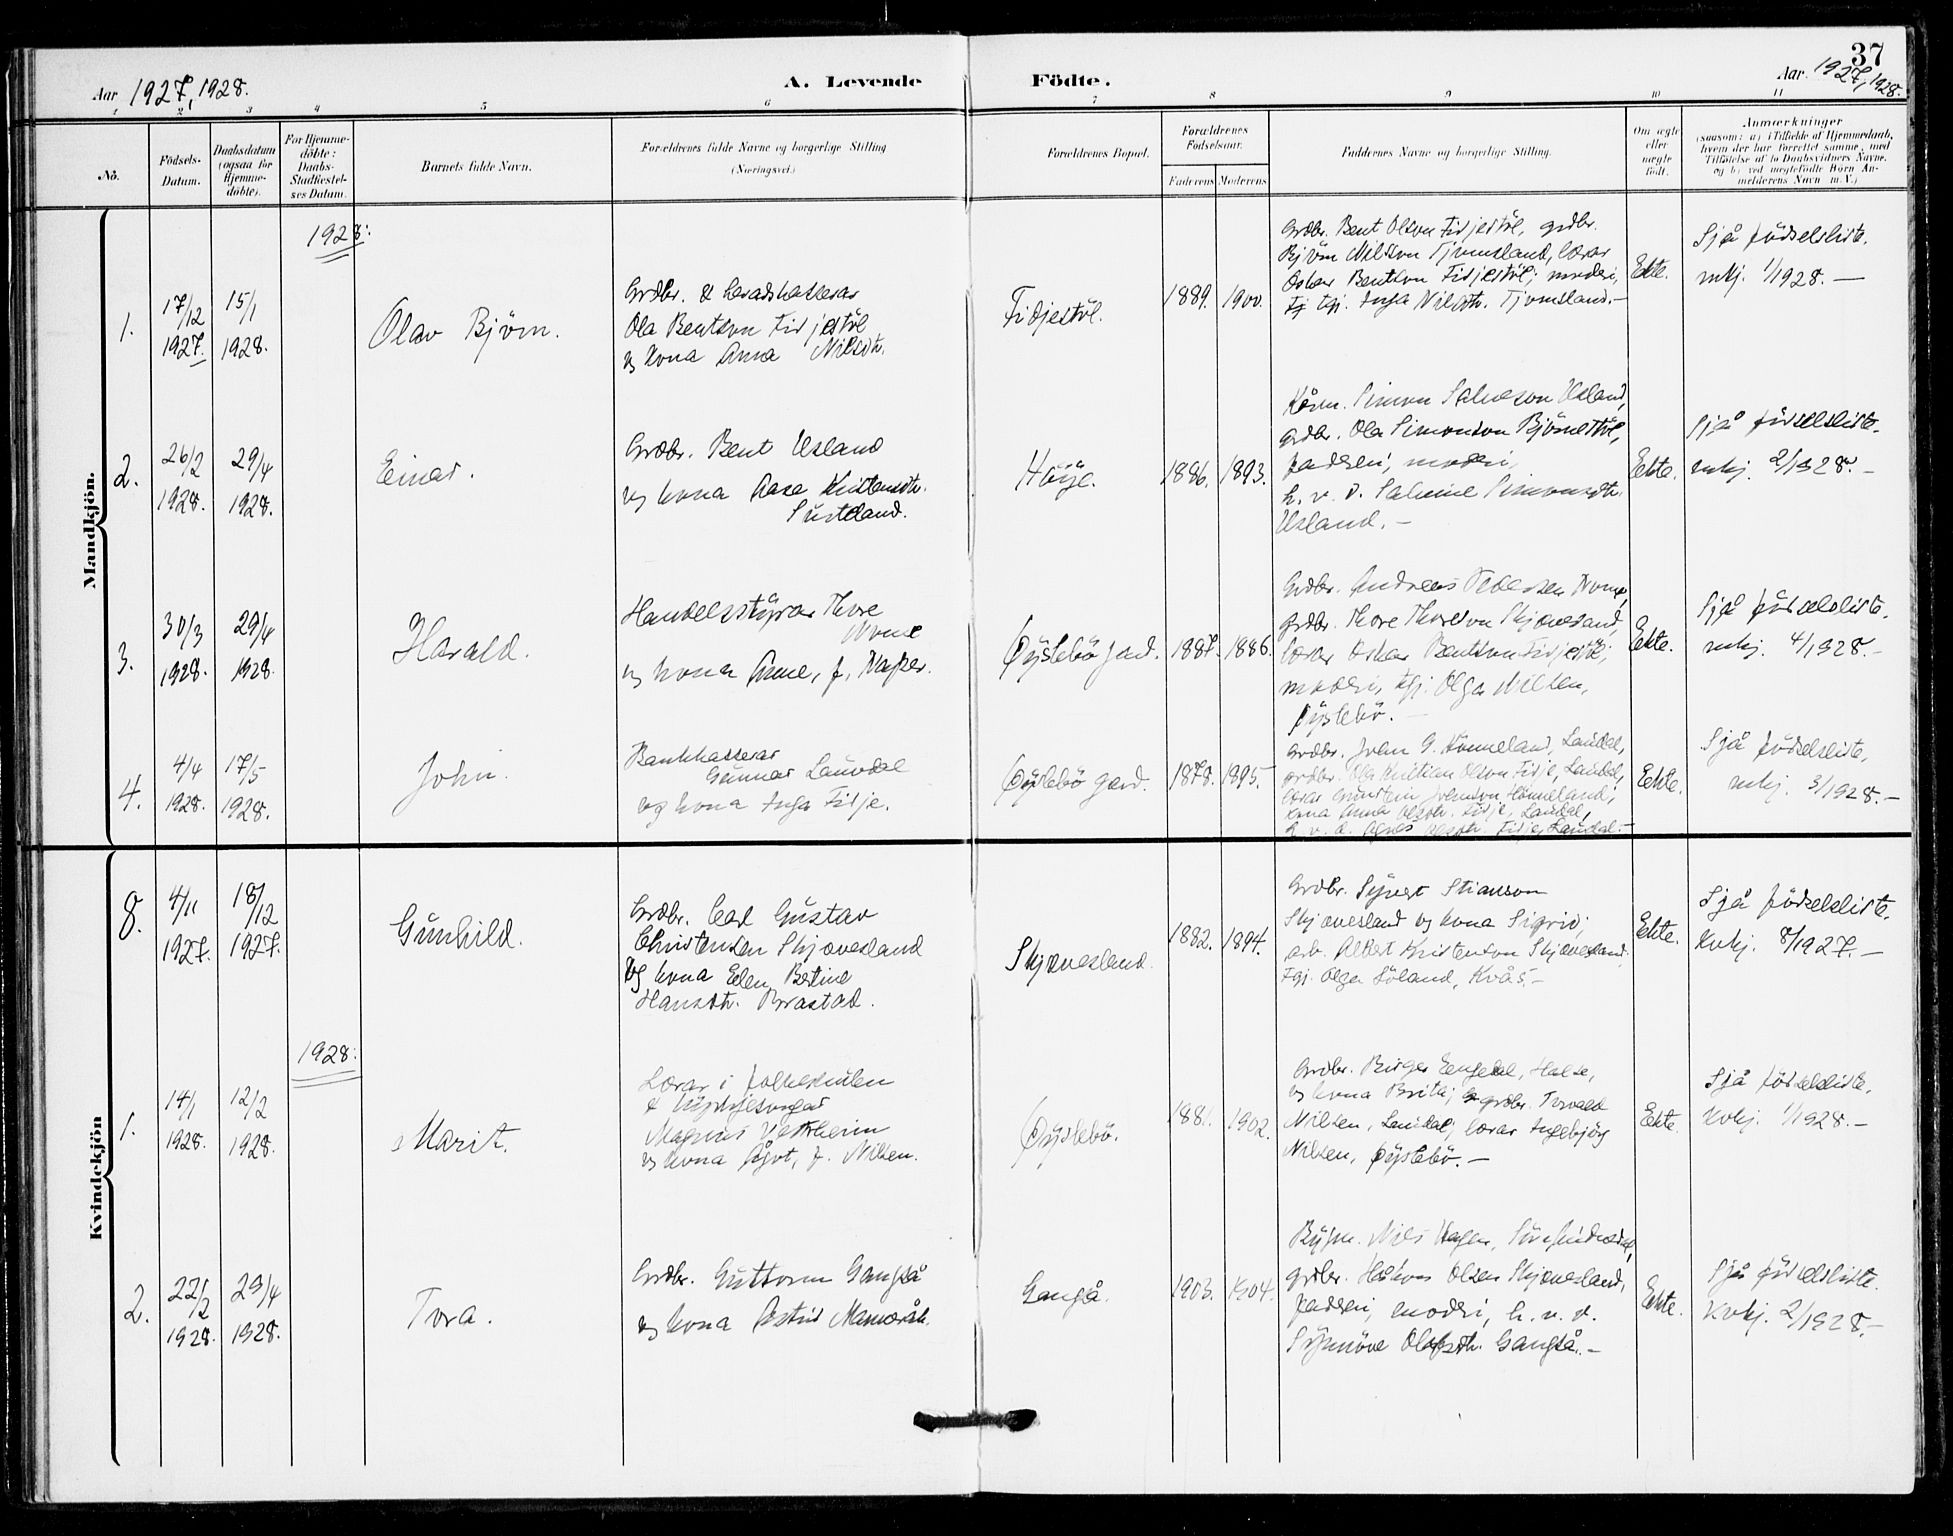 37
Aar 1927, 1928.
A. Levende Födte.
Aar. 1927, 1928.
1 2 3 4 5 6 7 8 9 10 11
No.
Födsels-
Datum.
Daabsdatum
(ogsaa for
Hjemme-
döbte).
For Hjemme-
döbte:
Daabs-
Stadfestel-
ses Datum.
Barnets fulde Navn.
Forældrenes fulde Navne og borgerlige Stilling
(Næringsvei.)
Forældrenes Bopæl.
Forældrenes
Födselsaar.
Faderens Moderens
Faddernes Navne og borgerlige Stilling.
Om ægte
eller
uægte
födt.
Anmærkninger
(saasom: a) i Tilfælde af Hjemmedaab,
hvem der har forrettet samme, med
Tilföielse af to Daabsvidners Navne,
og b) ved uægtefödte Börn An-
melderens Navn m.V.)
Mandkjön.
1928:
1.
17/12
1927.
15/1
1928.
Olav Björn.
Grdbr. & heradskasserar
Ola Bentson Fidjestöl
og kona Anna Nilsdtr.
Fidjestöl.
1889. 1900.
Grdbr. Bent Olson Fidjestöl, grdbr.
Björn Nilsson Tjomsland, lærar
Oskar Bentson Fidjestöl; moderi,
tgj. Inga Nilsdtr. Tjomsland.-
Ekte.
Sjå födselsliste.
mkj. 1/1928. -
2.
26/2
1928.
29/4
1928.
Einar.
Grdbr. Bent Usland
og kona Aasa Kristensdtr.
Høye.
1886. 1893.
Kårm. Simon Salveson Usland,
grdbr. Ola Simonson Björnestöl,
faderi, moderi,
h. v. d. Salmine Simonsdtr.
Usland. -
Ekte.
Sjå födselsliste.
mkj. 2/1928. -
3.
30/3
1928.
29/4
1928.
Harald.
Handelsstyrar Thore
Nome
og kona Anne, f.
Øyslebö gard.
1887. 1886.
Grdbr. Andreas Pedersen Nome,
grdbr. Thore Thoreson Skjævesland,
lærar Oskar Bentson Fidjestöl;
moderi, tgj. Olga Nilsen,
Øyslebö. -
Ekte.
Sjå födselsliste.
mkj. 4/1928. -
4.
4/4
1928.
17/5
1928.
John.
Bankkasserar
Gunnar Lauvdal
og kona Inga Fidje.
Øyslebö gard.
1878. 1895.
Grdbr. Johan G. Hönneland, Laudal,
grdbr. Ola Kristian Olson Fidje, Laudal,
lærar Gunstein Johnson Hönneland;
kona Anna Olsdtr. Fidje, Laudal,
h. v. d. Agnes Olsdtr. Fidje, Laudal. -
Ekte.
Sjå födselsliste.
mkj. 3/1928. -
Kvindekjön
8.
4/11
1927.
18/12
1927.
Gunhild.
Grdbr. Carl Gustav
Christensen Skjævesland
og kona Elen Bertine
Hansdtr. Brastad.
Skjævesland.
1882. 1894.
Grdbr. Syvert Stianson
Skjævesland og kona Sigrid;
arb. Albert Kristenson Skjævesland,
tgj. Olga Löland, Kvås. -
Ekte.
Sjå födselsliste.
Kvkj. 8/1927. -
1928:
1.
14/1
1928.
12/2
1928.
Marit.
Lærar i folkeskulen
& kyrkjesongar
Magnus Vestrheim
og kona Ågot, f. Nilsen.
Øyslebö.
1881. 1902.
Grdbr. Birger Eengedal, Halse,
og kona Brita; grdbr. Torvald
Nilsen, Laudal; lærar Ingebjörg
Nilsen, Øyslebö. -
Ekte.
Sjå födselsliste.
Kvkj. 1/1928. -
2.
22/2
1928.
29/4
1928.
Tora.
Grdbr. Guttorm Gangså
og kona Astrid
Gangså.
1903. 1904.
Bygm. Nils Hagen,
grdbr. Håkon Olsen Skjævesland,
faderi, moderi, h. v. d.
Synnöve Olafsdtr. Gangså. -
Ekte.
Sjå födselsliste.
Kvkj. 2/1928. -